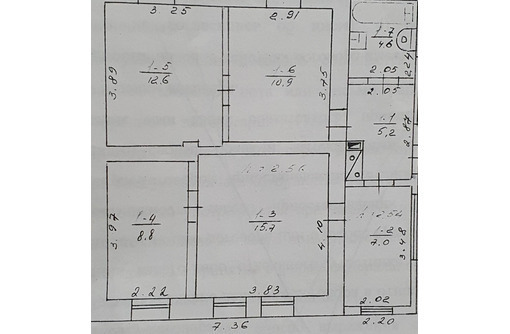 3.25
2.91
1-7
4.6
2.24
2.05
2.05
1-5
12.6
3.89
1-6
10.9
3.75
1-1
5,2
2.87
h=2.56
1-3
15.7
4.10
3.83
1-4
8.8
3.97
2.22
h 2.54
1-2
7.0
3.48
2.02
2.20
7.36